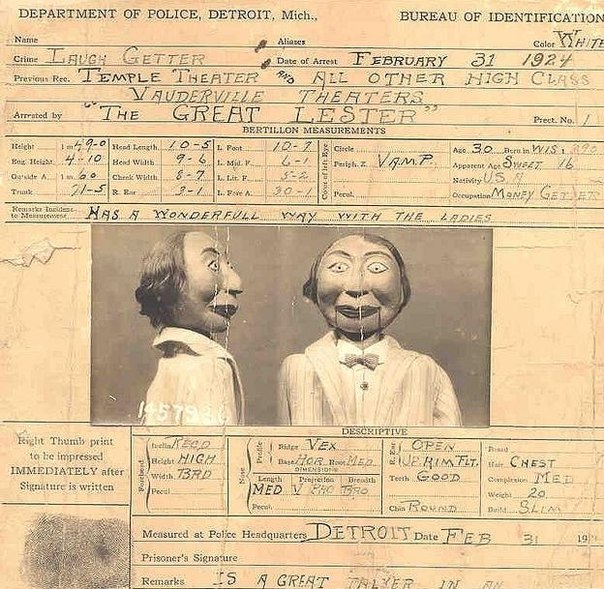 DEPARTMENT OF POLICE, DETROIT, Mich., BUREAU OF IDENTIFICATION
Name Aliases Color WHITE
Crime LAUGH GETTER Date of Arrest FEBRUARY 31 1924
Previous Rec. TEMPLE THEATER AND ALL OTHER HIGH CLASS
VAUDERVILLE THEATERS
Arrested by "THE GREAT LESTER" Prect. No. 1
BERTILLON MEASUREMENTS
Height 1 m 49-0 Head Length 10-5 L. Foot 10-7 Circle Age 30 Born in WIS.
Eng. Height 4-10 Head Width 9-6 L. Mid. F. 6-1 Periph. Z VAMP. Apparent Age SWEET 16
Outside A. 1 m 60 Cheek Width 8-7 L. Lit. F. 5-2 Nativity U.S.A
Trunk 71-5 R. Ear 3-1 L. Fore A. 30-1 Pecul. Occupation MONEY GETTER
Remarks Incident to Measurement HAS A WONDERFULL WAY WITH THE LADIES
DESCRIPTIVE
Right Thumb print
to be impressed
IMMEDIATELY after
Signature is written
Forehead
Inclin. RECD
Height HIGH
Width BRD
Pecul.
Nose
Profile
Ridge VEX
Base HOR. Root MED
DIMENSIONS
Length Projection Breadth
MED
Pecul.
R. Ear OPEN
UP RIM FLT.
Teeth GOOD
Chin ROUND
Beard
Hair CHEST
Complexion MED
Weight 20
Build SLIM
Measured at Police Headquarters DETROIT Date FEB 31
Prisoner's Signature
Remarks IS A GREAT TALKER IN AN